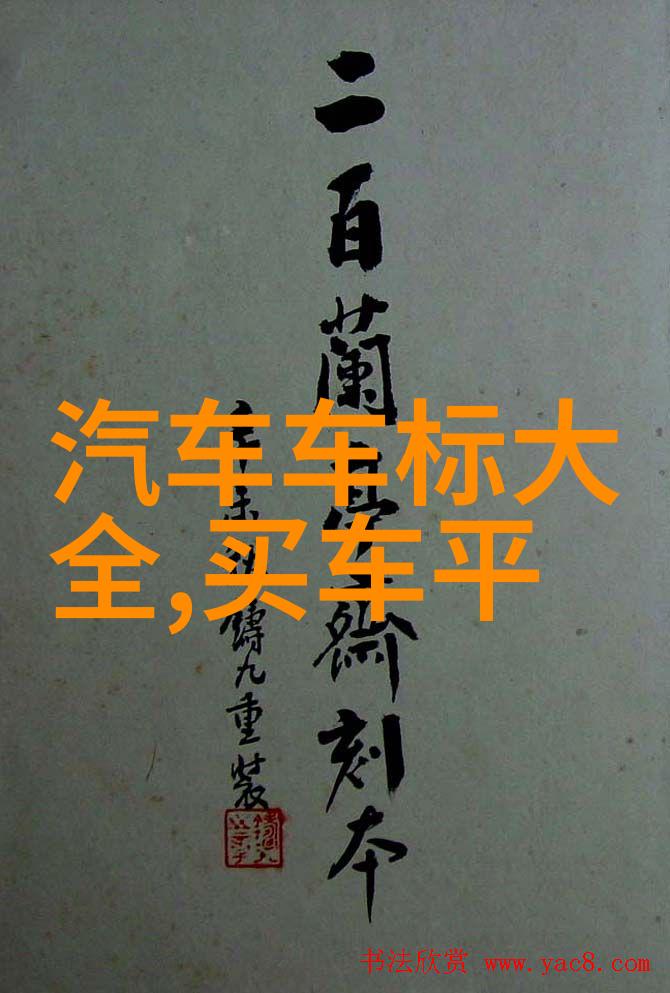 二百蘭亭齋刻本
鑄九重裝
汽车车标大
全,买车平
书法欣赏 www.yac8.com